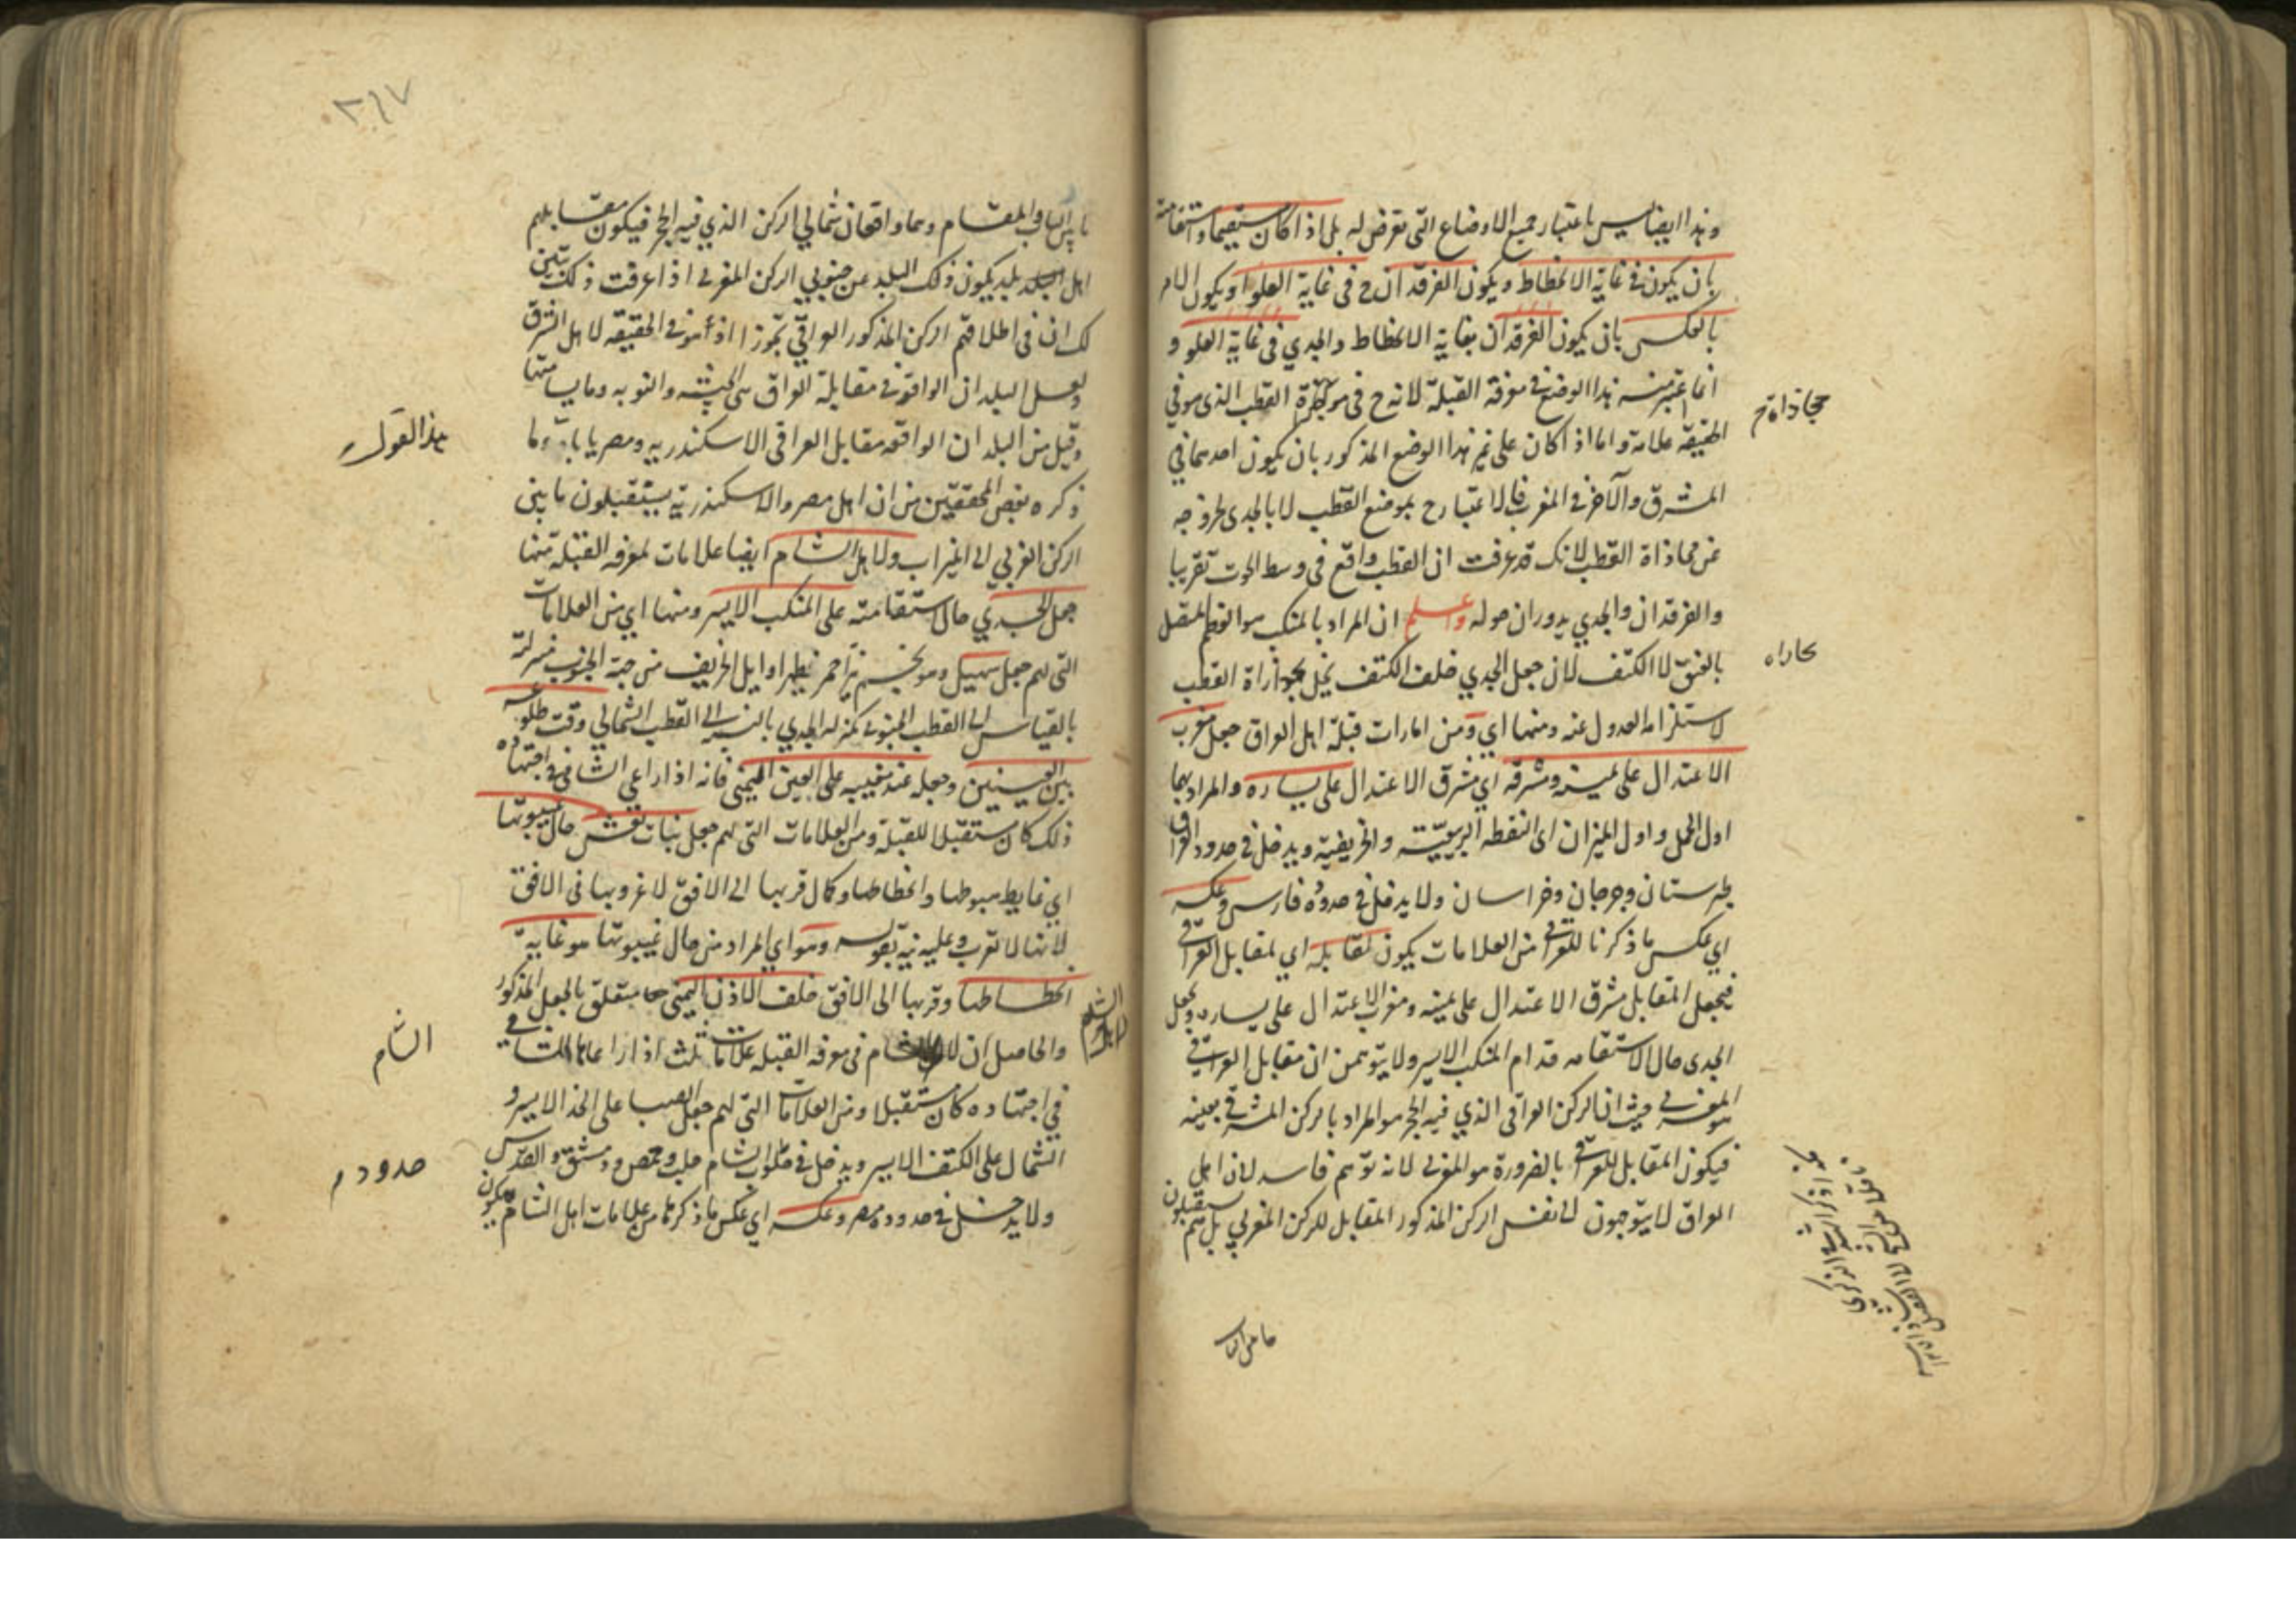 وهذا ايضا ليس باعتبار جميع الاوضاع التى تعرض له بل اذا كان مستقيما واستقامته
بان يكون فى غاية الانحطاط ويكون الفرقدان ح فى غاية العلو او يكون الامر
بالعكس بان يكون الفرقدان بغاية الانحطاط والجدي فى غاية العلو و
انما اعتبر منه هذا الوضع فى معرفة القبلة لانه ح فى القطب الذى هو فى
الحقيقة علامة واما اذا كان على غير هذا الوضع المذكور بان يكون احدهما فى
المشرق والآخر فى المغرب فالاعتبار ح بموضع القطب لا بالجدى لخروجه
عن محاذاة القطب لانك قد عرفت ان القطب واقع فى وسط الحوت تقريبا
والفرقدان والجدي يدوران حوله واعلم ان المراد بالمنكب هو العظم المتصل
بالعنق لا الكتف لان جعل الجدي خلف الكتف يخل بمحاذاة القطب
لاستلزامه العدول عنه ومنها اي ومن امارات قبلة اهل العراق جعل مغرب
الاعتدال على يمينه ومشرقه اي مشرق الاعتدال على يساره والمراد بهما
اول الحمل واول الميزان اى النقطه الربيعيّة والخريفية ويدخل فى حدود العراق
طبرستان وجرجان وخراسان ولا يدخل فى حدوده فارس وعكسه
اي عكس ما ذكرنا للعراقى من العلامات يكون لمقابله اي لمقابل العراقى
فيجعل المقابل مشرق الاعتدال على يمينه ومغرب الاعتدال على يساره ويجعل
الجدى حال الاستقامه قدام المنكب الايسر ولا يتوهمن ان مقابل العراقى
المغربى حيث ان الركن العراقى الذي فيه الحجر هو المراد بالركن المشرقى بعينه
فيكون المقابل للعراقى بالضرورة هو المغربى لانه توهم فاسد لان اهل
العراق لا يتوجهون الى نفس الركن المذكور المقابل للركن المغربي بل هم يستقبلون
محاذاة ح
ما بين الباب والمقام وهما واقعان شمالي الركن الذي فيه الحجر فيكون مقابلهم
اهل بلد يكون ذلك البلد عن جنوبي الركن المغربى اذا عرفت ذلك تبين
لك ان فى اطلاقهم الركن المذكور العراقي تجوزا اذ هو فى الحقيقة لاهل الشرق
ولعل البلدان الواقعة فى مقابلة العراق هى الحبشه والنوبه وما يسامتها
وقيل من البلدان الواقعه مقابل العراقى الاسكندريه ومصر ياباه ما
ذكره بعض المحققين من ان اهل مصر والاسكندرية يستقبلون ما بين
الركن الغربي الى الميزاب ولاهل الشام ايضا علامات لمعرفه القبلة منها
جعل الجدي حال استقامته على المنكب الايسر ومنها اي من العلامات
التى لهم جعل سهيل وهو نجم نير احمر يظهر اوايل الخريف من جهة الجنوب منزلته
بالقياس الى القطب الجنوبى كمنزله الجدي بالنسبه الى القطب الشمالي وقت طلوعه
بين العينين وجعله عند مغيبه على العين اليمنى فانه اذا راعى الشامى فى اجتهاده
ذلك كان مستقبلا للقبلة ومن العلامات التى لهم جعل بنات نعش حال غيبوبتها
اي غاية هبوطها وانحطاطها وكمال قربها الى الافق لا غروبها فى الافق
لانها لا تغرب وعليه نبه بقوله وهو اي المراد من حال غيبوبتها هو غاية
انحطاطها وقربها الى الافق خلف الاذن اليمنى متعلق بالجعل المذكور
والحاصل ان لاهل الشام فى معرفه القبلة علامات ثلث اذا راعاها الشامى
فى اجتهاده كان مستقبلا ومن العلامات التى لهم جعل الصبا على الخد الايسر و
الشمال على الكتف الايسر ويدخل فى الشام حلب وحمص ودمشق والقدس
ولا يدخل فى حدوده مصر وعكسه اي عكس ما ذكرنا من علامات اهل الشام يكون
هذا القول
الشام
حدودهم
٣٦٧